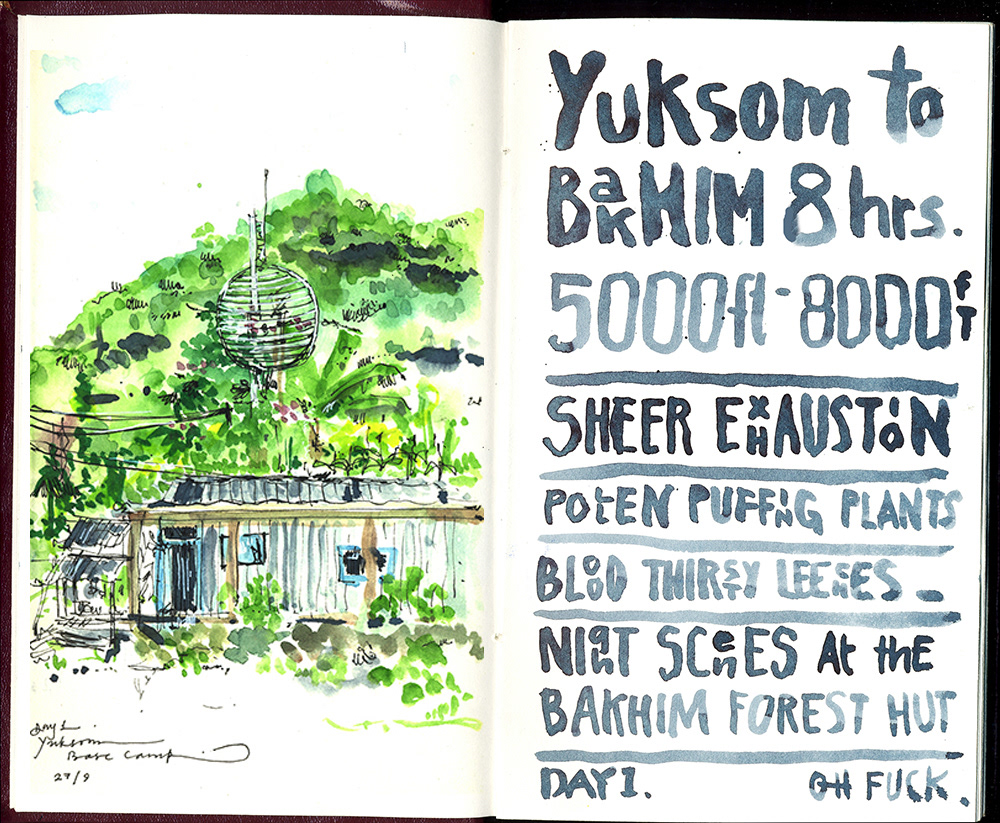 Day 1
Yuksom
Base Camp
27/9
Yuksom to
BakHIM 8 hrs.
5000ft - 8000ft
SHEER EXHAUSTION
POLLEN PUFFING PLANTS
BLOOD THIRSTY LEECHES -
NIGHT SCENES At thE
BAKHIM FOREST HUT
DAY 1. OH FUCK.